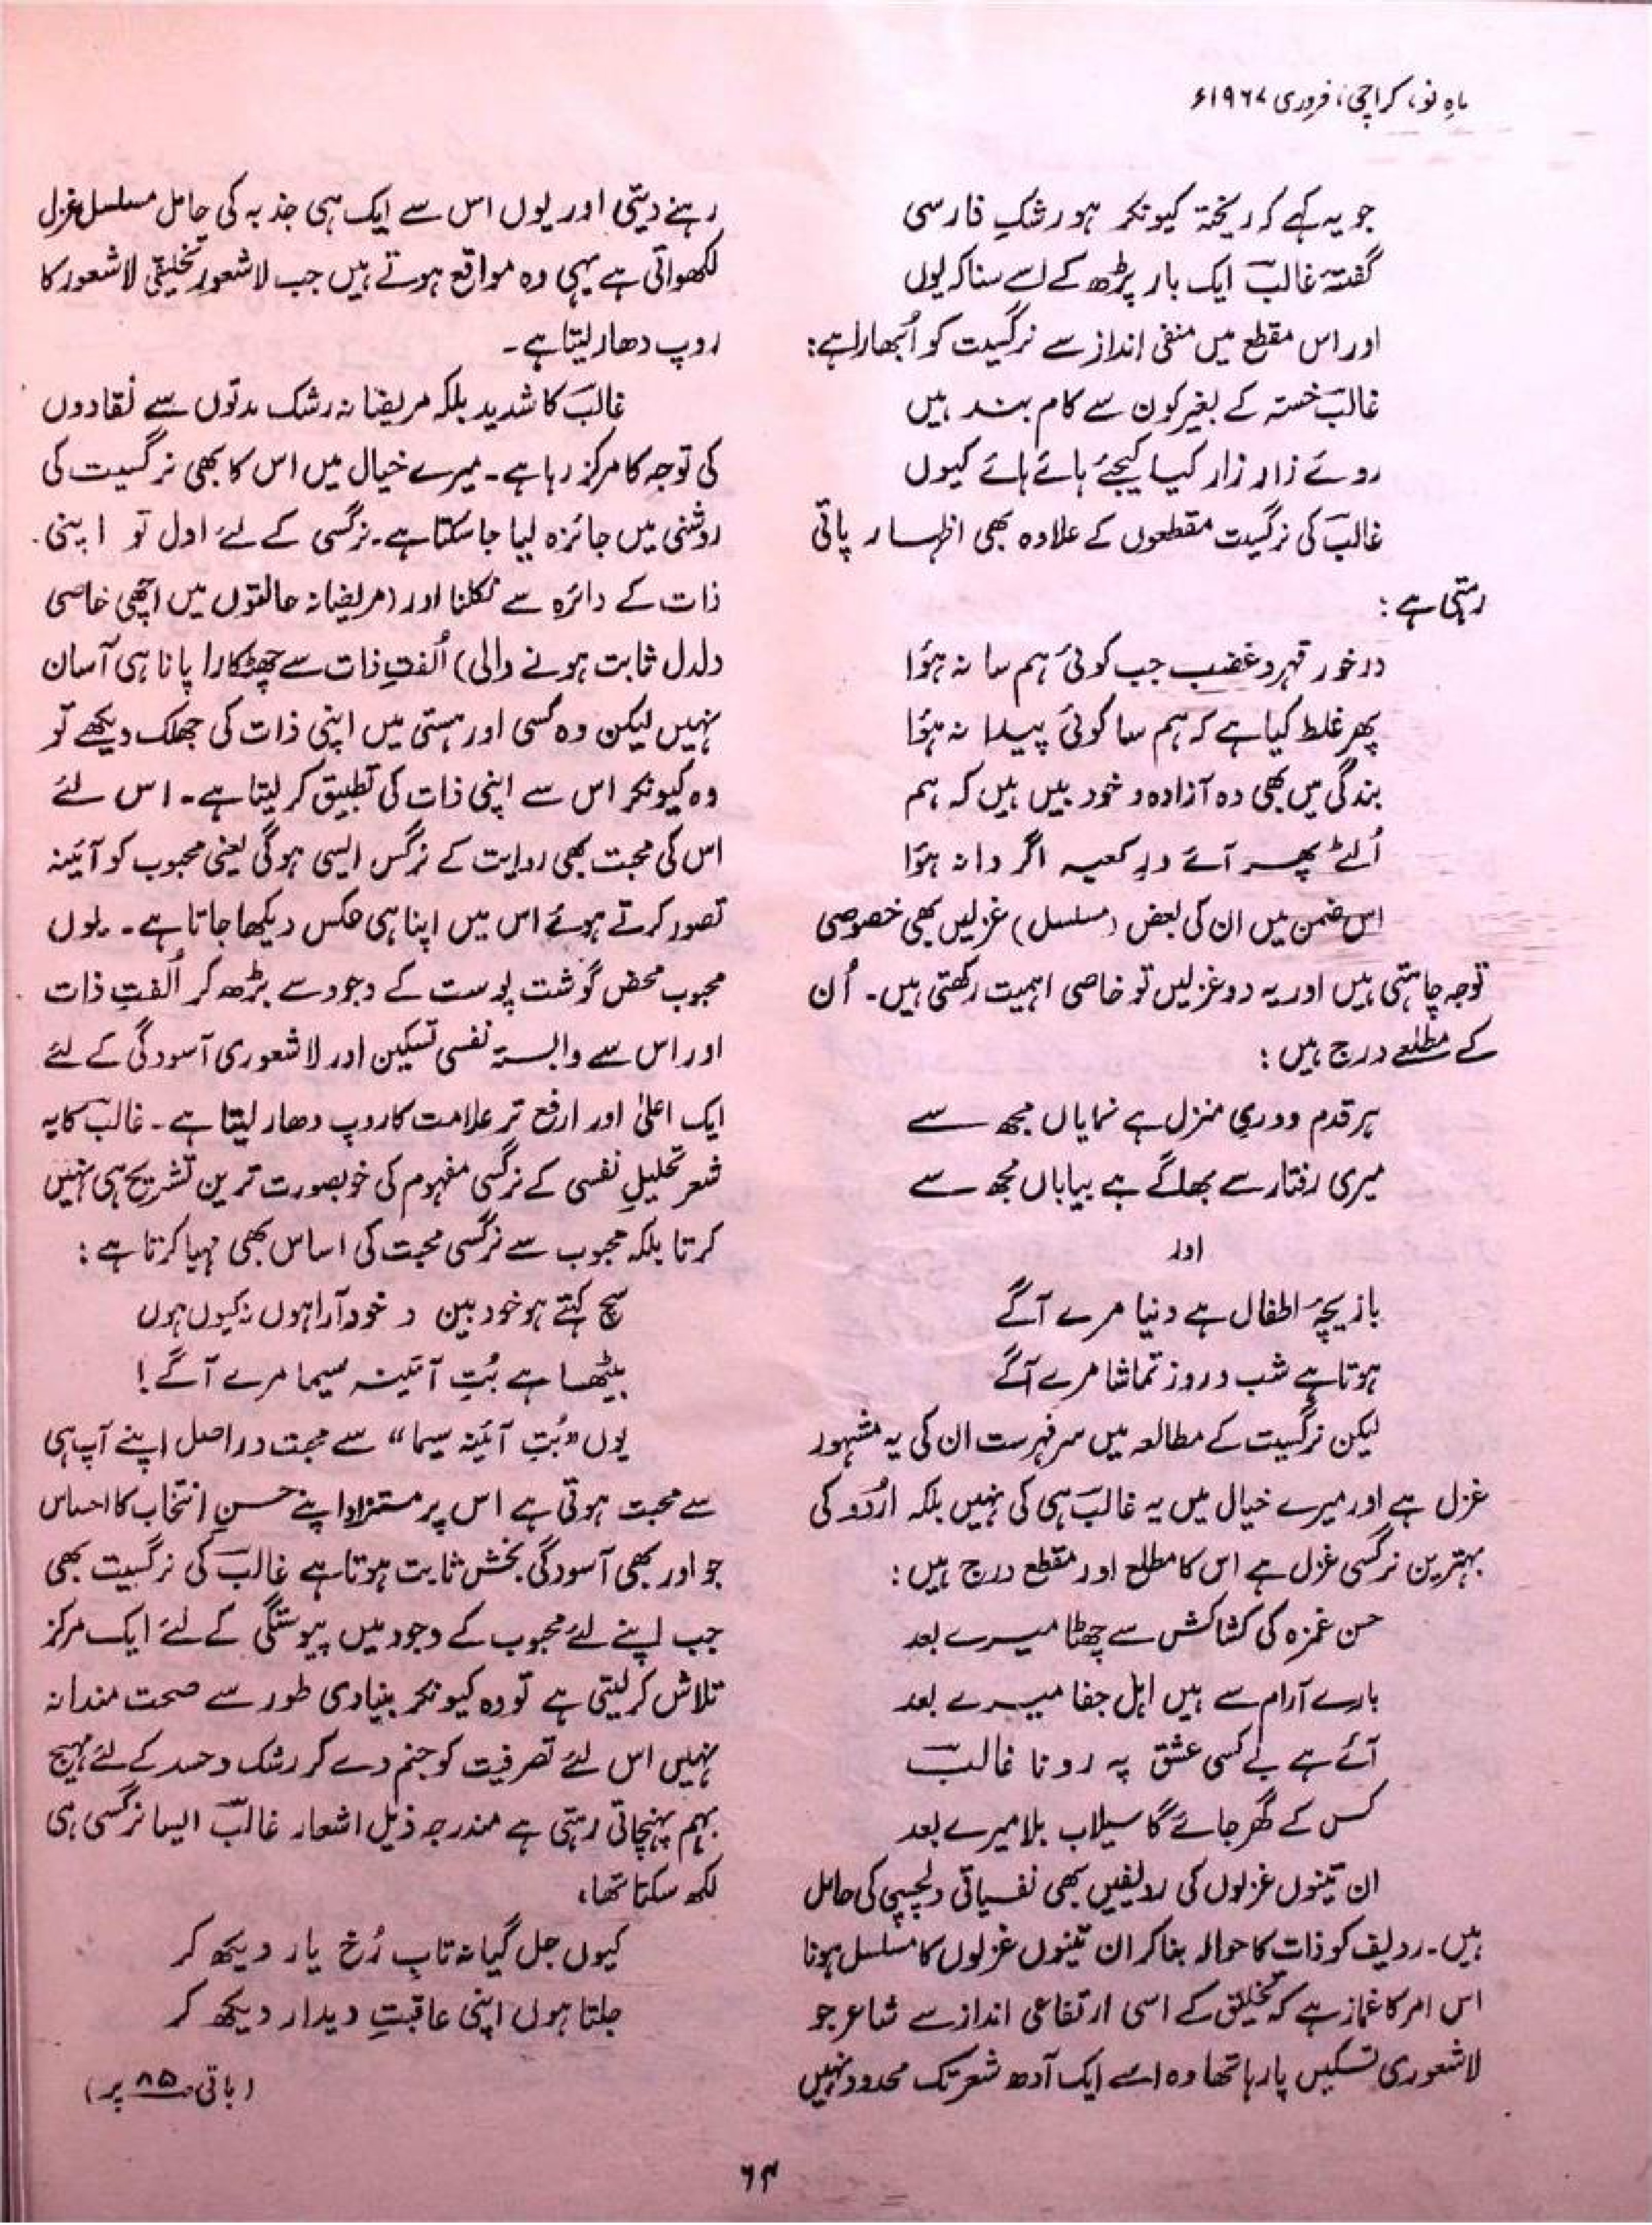 ماہِ نو، کراچی، فروری ۱۹۶۷ء
جو یہ کہے کہ ریختہ کیونکر ہو رشکِ فارسی
گفتۂ غالبؔ ایک بار پڑھ کے اسے سنا کہ یوں
اور اس مقطع میں منفی انداز سے نرگسیت کو اُبھارا ہے:
غالبؔ خستہ کے بغیر کون سے کام بند ہیں
روئے زار زار کیا کیجئے ہائے ہائے کیوں
غالبؔ کی نرگسیت مقطعوں کے علاوہ بھی اظہار پاتی
رہتی ہے:
درخور قہر و غضب جب کوئی ہم سا نہ ہؤا
پھر غلط کیا ہے کہ ہم سا کوئی پیدا نہ ہؤا
بندگی میں بھی وہ آزادہ و خود بیں ہیں کہ ہم
اُلٹے پھر آئے درِ کعبہ اگر وا نہ ہؤا
اس ضمن میں ان کی بعض (مسلسل) غزلیں بھی خصوصی
توجہ چاہتی ہیں اور یہ دو غزلیں تو خاصی اہمیت رکھتی ہیں۔ اُن
کے مطلعے درج ہیں:
ہر قدم دوریِ منزل ہے نمایاں مجھ سے
میری رفتار سے بھاگے ہے بیاباں مجھ سے
اور
بازیچۂ اطفال ہے دنیا مرے آگے
ہوتا ہے شب و روز تماشا مرے آگے
لیکن نرگسیت کے مطالعہ میں سرفہرست ان کی یہ مشہور
غزل ہے اور میرے خیال میں یہ غالبؔ ہی کی نہیں بلکہ اردو کی
بہترین نرگسی غزل ہے اس کا مطلع اور مقطع درج ہیں:
حسن غمزہ کی کشاکش سے چھٹا میرے بعد
بارے آرام سے ہیں اہلِ جفا میرے بعد
آئے ہے بے کسی عشق پہ رونا غالبؔ
کس کے گھر جائے گا سیلاب بلا میرے بعد
ان تینوں غزلوں کی ردیفیں بھی نفسیاتی دلچسپی کی حامل
ہیں۔ ردیف کو ذات کا حوالہ بنا کر ان تینوں غزلوں کا مسلسل ہونا
اس امر کا غماز ہے کہ تخلیق کے اسی ارتفاعی انداز سے شاعر جو
لاشعوری تسکیں پا رہا تھا وہ اسے ایک آدھ شعر تک محدود نہیں
رہنے دیتی اور یوں اس سے ایک ہی جذبہ کی حامل مسلسل غزل
لکھواتی ہے یہی وہ مواقع ہوتے ہیں جب لاشعور تخلیقی لاشعور کا
روپ دھار لیتا ہے۔
غالبؔ کا شدید بلکہ مریضانہ رشک مدتوں سے نقادوں
کی توجہ کا مرکز رہا ہے۔ میرے خیال میں اس کا بھی نرگسیت کی
روشنی میں جائزہ لیا جا سکتا ہے۔ نرگسی کے لئے اول تو اپنی
ذات کے دائرہ سے نکلنا اور (مریضانہ حالتوں میں اچھی خاصی
دلدل ثابت ہونے والی) اُلفتِ ذات سے چھٹکارا پانا ہی آسان
نہیں لیکن وہ کسی اور ہستی میں اپنی ذات کی جھلک دیکھے تو
وہ کیونکر اس سے اپنی ذات کی تطبیق کر لیتا ہے۔ اس لئے
اس کی محبت بھی روایت کے نرگس ایسی ہوگی یعنی محبوب کو آئینہ
تصور کرتے ہوئے اس میں اپنا ہی عکس دیکھا جاتا ہے۔ یوں
محبوب محض گوشت پوست کے وجود سے بڑھ کر اُلفتِ ذات
اور اس سے وابستہ نفسی تسکین اور لاشعوری آسودگی کے لئے
ایک اعلیٰ اور ارفع تر علامت کا روپ دھار لیتا ہے۔ غالبؔ کا یہ
شعر تحلیلِ نفسی کے نرگسی مفہوم کی خوبصورت ترین تشریح ہی نہیں
کرتا بلکہ محبوب سے نرگسی محبت کی اساس بھی مہیا کرتا ہے:
سچ کہتے ہو خود بین و خود آرا ہوں نہ کیوں ہوں
بیٹھا ہے بُتِ آئینہ سیما مرے آگے!
یوں "بُتِ آئینہ سیما" سے محبت دراصل اپنے آپ ہی
سے محبت ہوتی ہے اس پر مستزاد اپنے حسنِ انتخاب کا احساس
جو اور بھی آسودگی بخش ثابت ہوتا ہے غالبؔ کی نرگسیت بھی
جب اپنے لئے محبوب کے وجود میں پیوستگی کے لئے ایک مرکز
تلاش کر لیتی ہے تو وہ کیونکر بنیادی طور سے صحت مندانہ
نہیں اس لئے تصرفیت کو جنم دے کر رشک و حسد کے لئے مہیج
بہم پہنچاتی رہتی ہے مندرجہ ذیل اشعار غالبؔ ایسا نرگسی ہی
لکھ سکتا تھا،
کیوں جل گیا نہ تابِ رُخِ یار دیکھ کر
جلتا ہوں اپنی عاقبتِ دیدار دیکھ کر
(باقی صـ ۸۵ پر)
۶۴